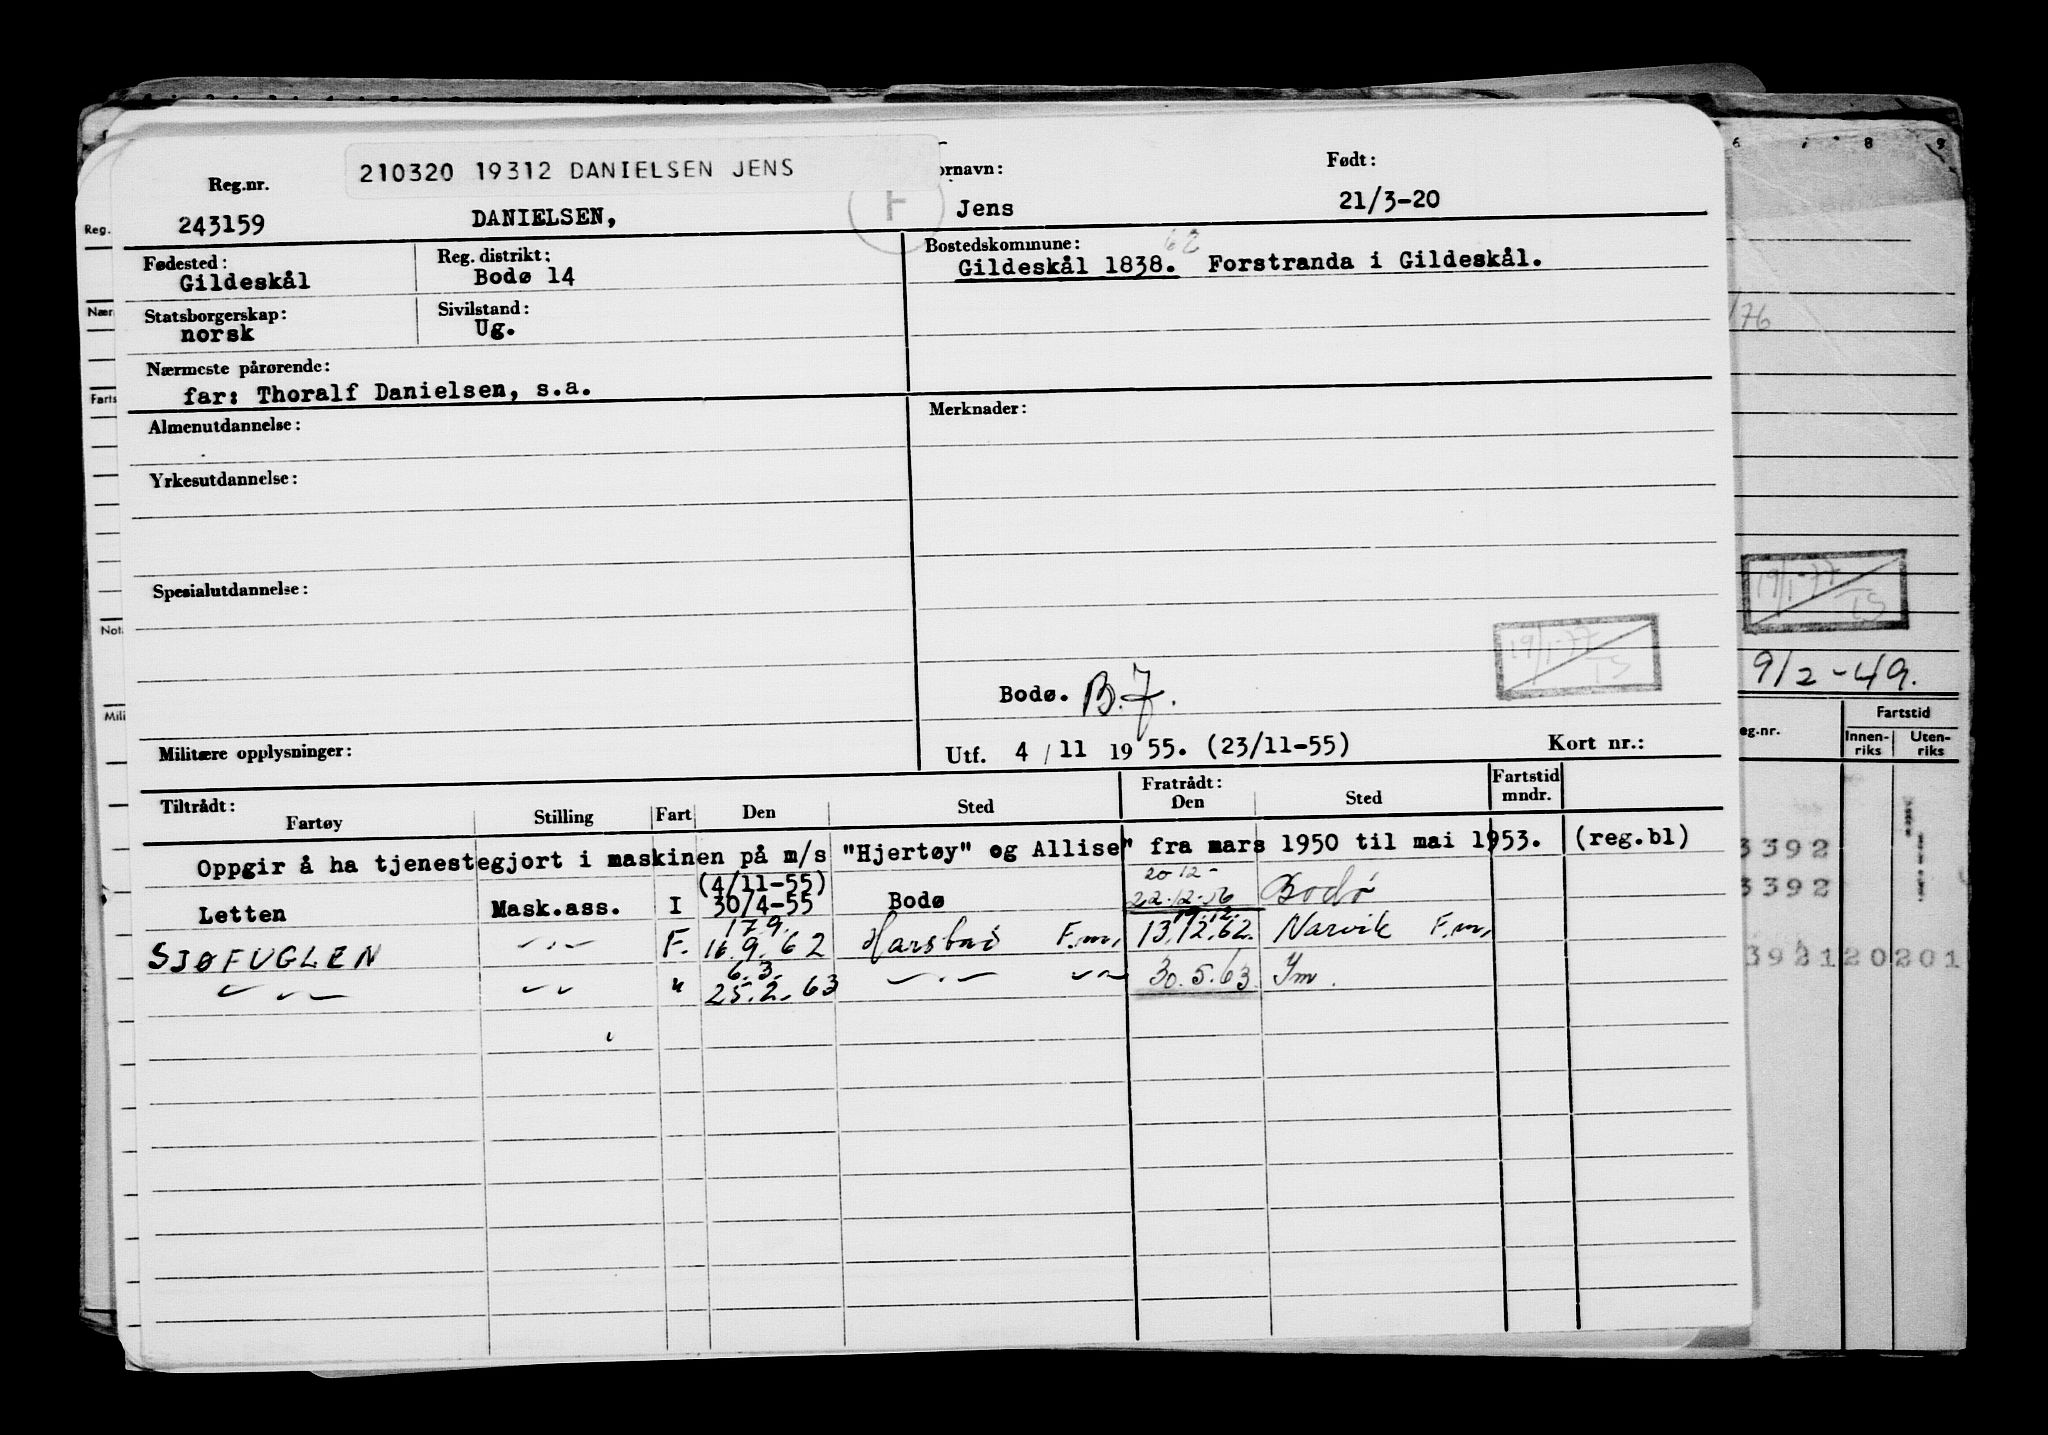 210320 19312 DANIELSEN JENS
Reg.nr. ornavn: Født:
243159 DANIELSEN, F Jens 21/3-20
Fødested: Reg. distrikt: Bostedskommune: 62
Gildeskål Bodø 14 Gildeskål 1838. Forstranda i Gildeskål.
Statsborgerskap: Sivilstand:
norsk Ug.
Nærmeste pårørende:
far: Thoralf Danielsen, s.a.
Almenutdannelse: Merknader:
Yrkesutdannelse:
Spesialutdannelse:
19/1-77
TS
Bodø. B.J.
Militære opplysninger: Utf. 4 / 11 19 55. (23/11-55) Kort nr.:
Tiltrådt: Fratrådt: Fartstid
Fartøy Stilling Fart Den Sted Den Sted mndr.
Oppgir å ha tjenestegjort i maskinen på m/s "Hjertøy" og Allise" fra mars 1950 til mai 1953. (reg.bl)
(4/11-55) 20 12 -
Letten Mask.ass. I 30/4-55 Bodø 22.12.56 Bodø
17.9. 19.12.
SJØFUGLEN -"- F. 16.9.62 F.m. 13.12.62. Narvik F.m.
6.3.
-"- -"- " 25.2.63 -"- -"- 30.5.63. Fm.
Reg.
Nær
Farts
Not
Mili
6 7 8 9
/76
19/1-77
TS
9/2-49.
eg.nr. Fartstid
Innen-riks Uten-riks
3392
3392
392120201